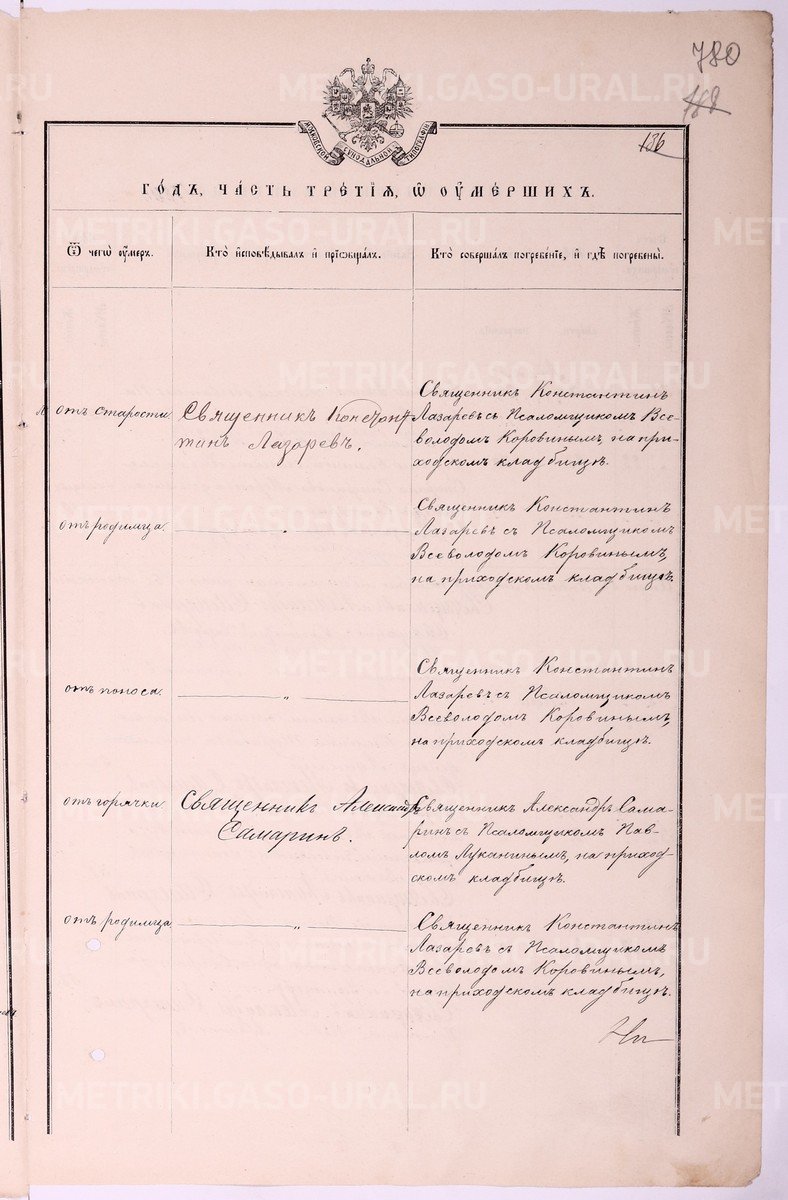 780
136
МОСКОВСКОЙ СѴНОДАЛЬНОЙ ТИПОГРАФІИ
ГОДЪ, ЧАСТЬ ТРЕТІЯ, Ѡ ОУМЕРШИХЪ.
Ѿ чегѡ оумеръ.
Кто исповѣдывалъ и пріобщалъ.
Кто совершалъ погребеніе, и гдѣ погребены.
отъ старости
Священникъ Констан-
тинъ Лазаревъ.
Священникъ Константинъ
Лазаревъ съ Псаломщикомъ Все-
володомъ Коровинымъ, на при-
ходскомъ кладбищѣ.
отъ родимца.
„
Священникъ Константинъ
Лазаревъ съ Псаломщикомъ
Всеволодомъ Коровинымъ,
на приходскомъ кладбищѣ.
отъ поноса.
„
Священникъ Константинъ
Лазаревъ съ Псаломщикомъ
Всеволодомъ Коровинымъ,
на приходскомъ кладбищѣ.
отъ горячки
Священникъ Александръ
Самаринъ.
Священникъ Александръ Сама-
ринъ съ Псаломщикомъ Пав-
ломъ Луканинымъ, на приход-
скомъ кладбищѣ.
отъ родимца
„
Священникъ Константинъ
Лазаревъ съ Псаломщикомъ
Всеволодомъ Коровинымъ,
на приходскомъ кладбищѣ.
METRIKI.GASO-URAL.RU